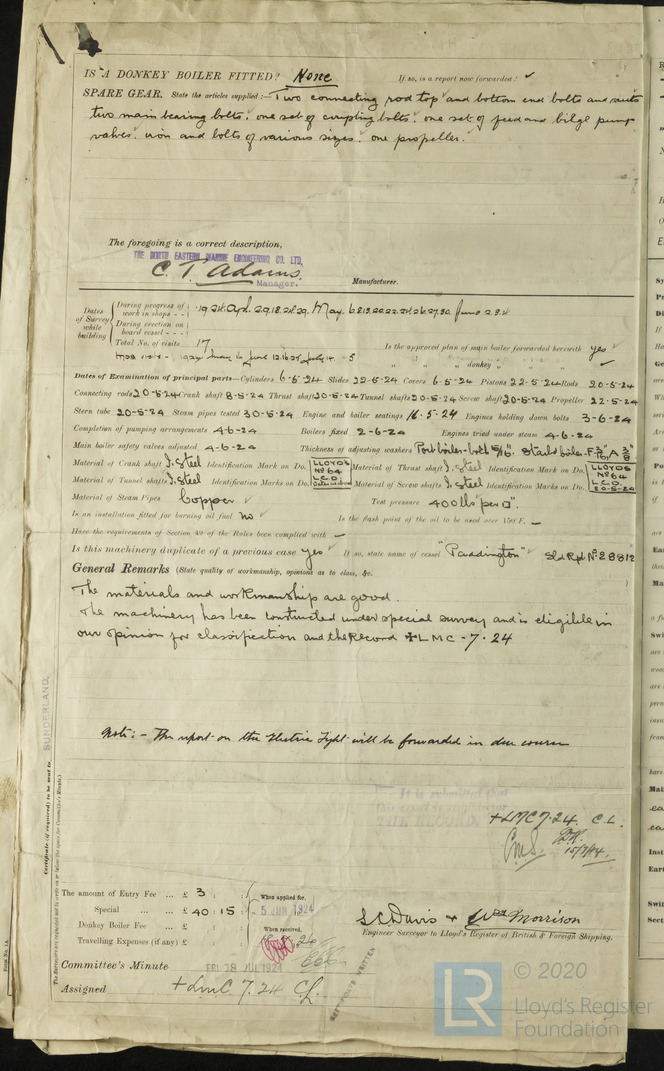 IS A DONKEY BOILER FITTED? None If so, is a report now forwarded? ✓
SPARE GEAR. State the articles supplied:— Two connecting rod top and bottom end bolts and nuts
two main bearing bolts, one set of coupling bolts, one set of feed and bilge pump
valves, iron and bolts of various sizes, one propeller.
The foregoing is a correct description,
THE NORTH EASTERN MARINE ENGINEERING CO. LTD,
C. T. Adams.
Manager. Manufacturer.
Dates of Survey while building
During progress of work in shops - - 19 24. Apl. 2.9.18.24.29. May. 6.8.13.20.22.24.26.27.30 June 2.3.4
During erection on board vessel - - -
Total No. of visits 17 Is the approved plan of main boiler forwarded herewith yes
" " " donkey " " " ✓
Dates of Examination of principal parts—Cylinders 6-5-24 Slides 22-5-24 Covers 6-5-24 Pistons 22-5-24 Rods 20-5-24
Connecting rods 20-5-24 Crank shaft 8-5-24 Thrust shaft 20-5-24 Tunnel shafts 20-5-24 Screw shaft 20-5-24 Propeller 22-5-24
Stern tube 20-5-24 Steam pipes tested 30-5-24 Engine and boiler seatings 16.5.24 Engines holding down bolts 3-6-24
Completion of pumping arrangements 4-6-24 Boilers fixed 2-6-24 Engines tried under steam 4-6-24
Main boiler safety valves adjusted 4-6-24 Thickness of adjusting washers Port boiler-both 5/16". Starbd boiler-F. A 3/8
Material of Crank shaft I. Steel Identification Mark on Do. LLOYDS No 64 L.C.D. Material of Thrust shaft I. Steel Identification Mark on Do. LLOYDS No 64 L.C.D. 20-5-24
Material of Tunnel shafts I. Steel Identification Marks on Do. Material of Screw shafts I. Steel Identification Marks on Do.
Material of Steam Pipes Copper ✓ Test pressure 400 lbs per □".
Is an installation fitted for burning oil fuel no ✓ Is the flash point of the oil to be used over 150°F. —
Have the requirements of Section 49 of the Rules been complied with —
Is this machinery duplicate of a previous case yes ✓ If so, state name of vessel "Paddington" Sld Rpt No 28812
General Remarks (State quality of workmanship, opinions as to class, &c.
The materials and workmanship are good.
The machinery has been constructed under special survey and is eligible in
our opinion for classification and the Record +LMC-7.24
Note:- The report on the Electric Light will be forwarded in due course
It is submitted that
THE RECORD
+LMC 7.24. C.L.
15/7/24.
Certificate (if required) to be sent to SUNDERLAND.
The amount of Entry Fee ... £ 3 : :
Special ... ... £ 40 : 15 :
Donkey Boiler Fee ... £ : :
Travelling Expenses (if any) £ : :
When applied for,
5 JUN 1924
When received,
S C Davis & Wm Morrison
Engineer Surveyor to Lloyd's Register of British & Foreign Shipping.
Committee's Minute FRI 18 JUL 1924
Assigned +LMC 7.24 CL.
CERTIFICATE WRITTEN
Form No. 1A.
© 2020
LR
Lloyd's Register
Foundation